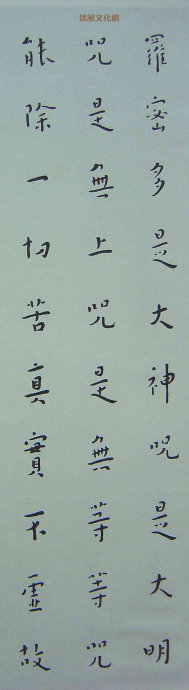 微風文化網
羅蜜多是大神呪是大明
呪是無上呪是無等等呪
能除一切苦真實不虛故